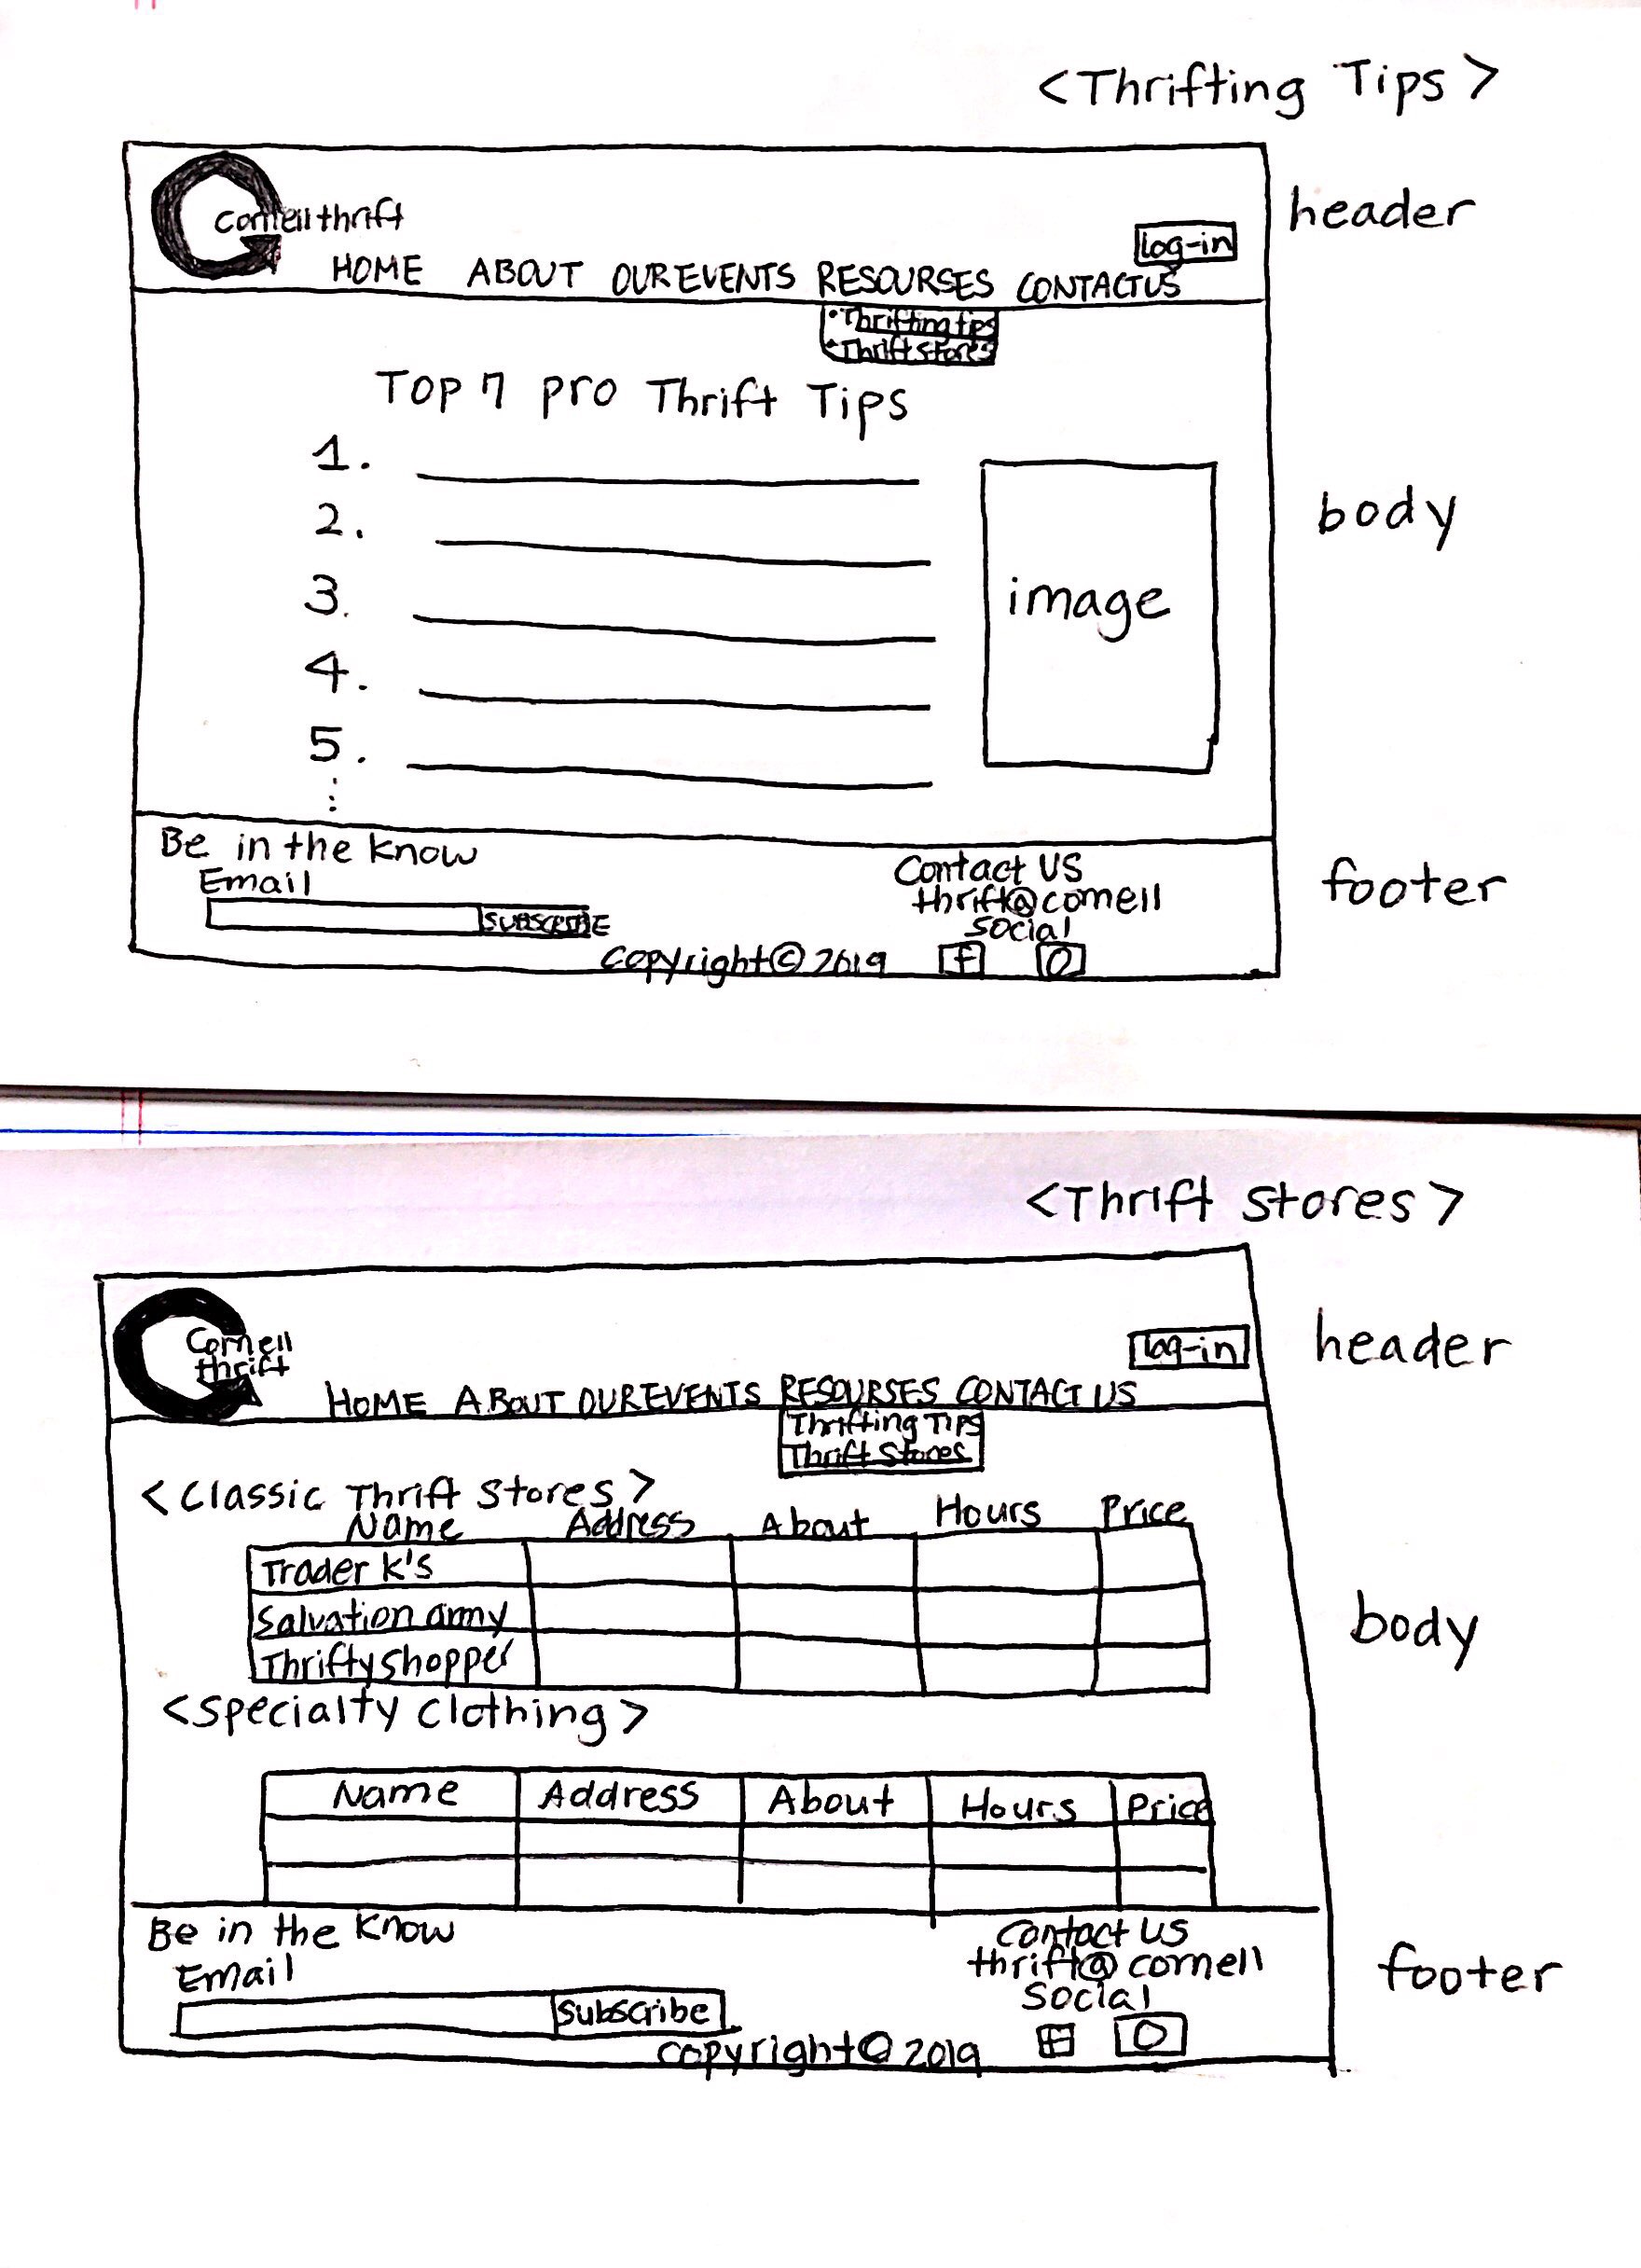 <Thrifting Tips>
header
Cornell thrift
log-in
HOME ABOUT OUR EVENTS RESOURSES CONTACT US
• Thrifting tips
• Thrift stores
Top 7 pro Thrift Tips
1.
2.
3.
4.
5.
image
body
Be in the know
Email
SUBSCRIBE
Contact US
thrift@cornell
social
f
Copyright © 2019
footer
<Thrift stores>
header
Cornell
thrift
log-in
HOME ABOUT OUR EVENTS RESOURSES CONTACT US
Thrifting Tips
Thrift Stores
<Classic Thrift stores>
Name Address About Hours Price
Trader K's
Salvation army
Thrifty shopper
body
<Specialty Clothing>
Name Address About Hours Price
Be in the Know
Email
Subscribe
Contact US
thrift@cornell
Social
f
copyright © 2019
footer